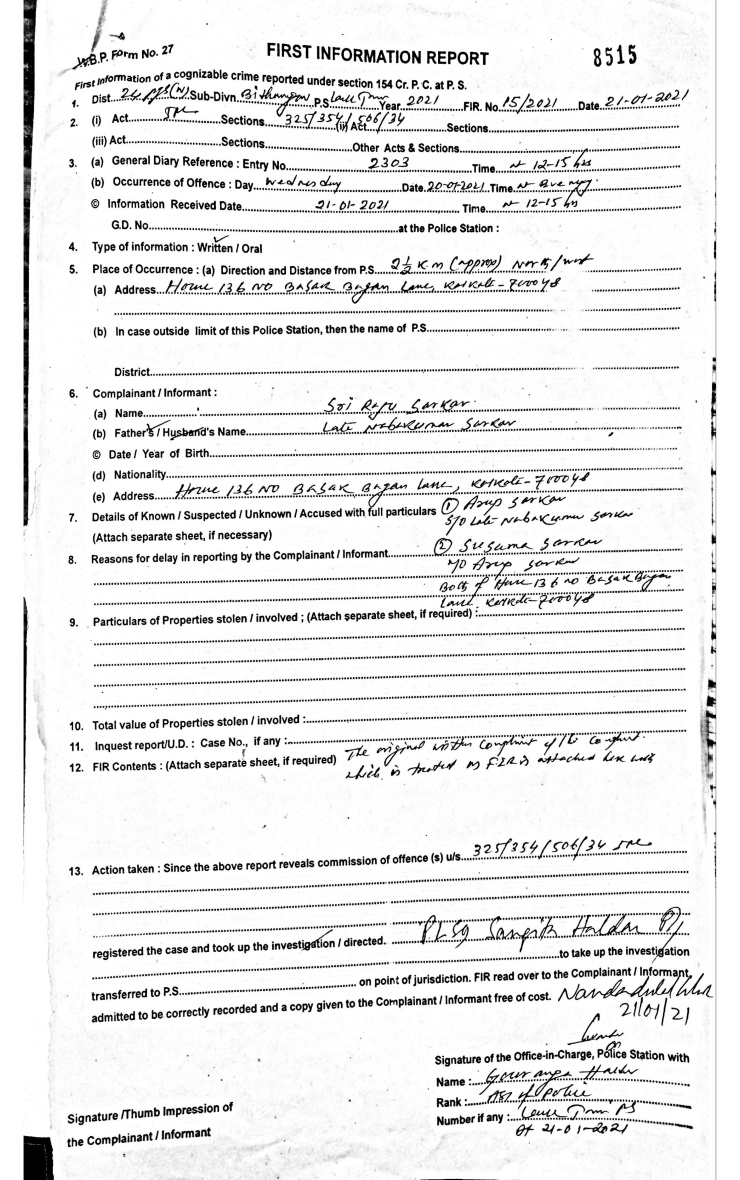 W.B.P. Form No. 27
FIRST INFORMATION REPORT
8515
First Information of a cognizable crime reported under section 154 Cr. P. C. at P. S.
1. Dist. 24 PGS(N) Sub-Divn. P.S. Lake Town Year 2021 FIR. No. 15/2021 Date 21-01-2021
2. (i) Act IPC Sections 325/354/506/34 (ii) Act Sections
(iii) Act Sections Other Acts & Sections
3. (a) General Diary Reference : Entry No. 2303 Time at 12-15 hrs
(b) Occurrence of Offence : Day Wednesday Date 20-01-2021 Time at
© Information Received Date 21-01-2021 Time at 12-15 hrs
G.D. No. at the Police Station :
4. Type of information : Written / Oral
5. Place of Occurrence : (a) Direction and Distance from P.S. 2½ Km (approx) North/west
(a) Address House 136 NO Basak Bagan Lane, Kolkata-700048
(b) In case outside limit of this Police Station, then the name of P.S.
District
6. Complainant / Informant :
(a) Name Sri Raju Sarkar
(b) Father's / Husband's Name Late Nabakumar Sarkar
© Date / Year of Birth
(d) Nationality
(e) Address House 136 NO Basak Bagan Lane, Kolkata-700048
7. Details of Known / Suspected / Unknown / Accused with full particulars ① Arup Sarkar
S/O Late Nabakumar Sarkar
(Attach separate sheet, if necessary)
② Susama Sarkar
8. Reasons for delay in reporting by the Complainant / Informant
W/O Arup Sarkar
Both of House 136 no Basak Bagan
Lane, Kolkata-700048
9. Particulars of Properties stolen / involved ; (Attach separate sheet, if required) :
10. Total value of Properties stolen / involved :
11. Inquest report/U.D. : Case No., if any :
12. FIR Contents : (Attach separate sheet, if required) The original written complaint of the
which is treated as FIR is attached here with
13. Action taken : Since the above report reveals commission of offence (s) u/s 325/354/506/34 IPC
registered the case and took up the investigation / directed. Haldar
to take up the investigation
transferred to P.S. on point of jurisdiction. FIR read over to the Complainant / Informant,
admitted to be correctly recorded and a copy given to the Complainant / Informant free of cost.
21/01/21
Signature of the Office-in-Charge, Police Station with
Name : Gouranga Halder
Rank : ASI of Police
Signature /Thumb Impression of
Number if any : Lake Town PS
the Complainant / Informant
Dt 21-01-2021